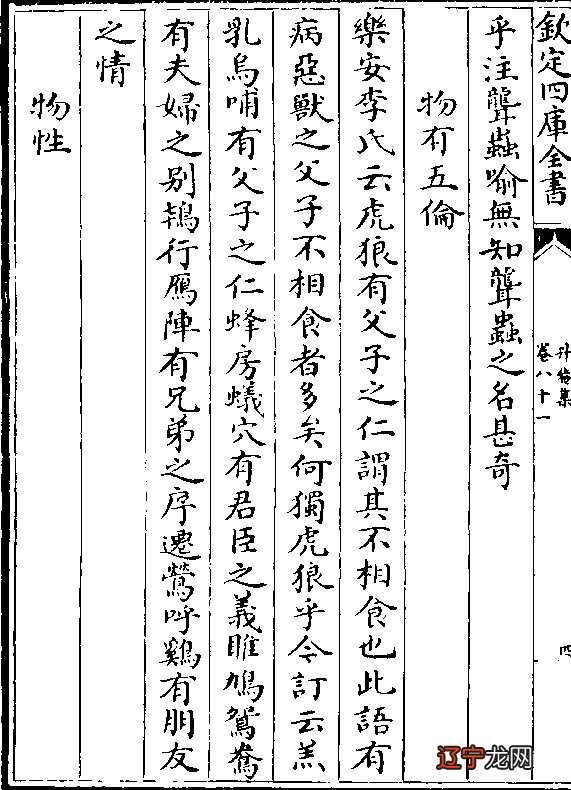 欽定四庫全書
升菴集
卷八十一
四
乎注聾蟲喻無知聾蟲之名甚奇
物有五倫
樂安李氏云虎狼有父子之仁謂其不相食也此語有
病惡獸之父子不相食者多矣何獨虎狼乎今訂云羔
乳烏哺有父子之仁蜂房蟻穴有君臣之義雎鳩鴛鴦
有夫婦之别鴇行鴈陣有兄弟之序遷鶯呼雞有朋友
之情
物性
辽宁龙网